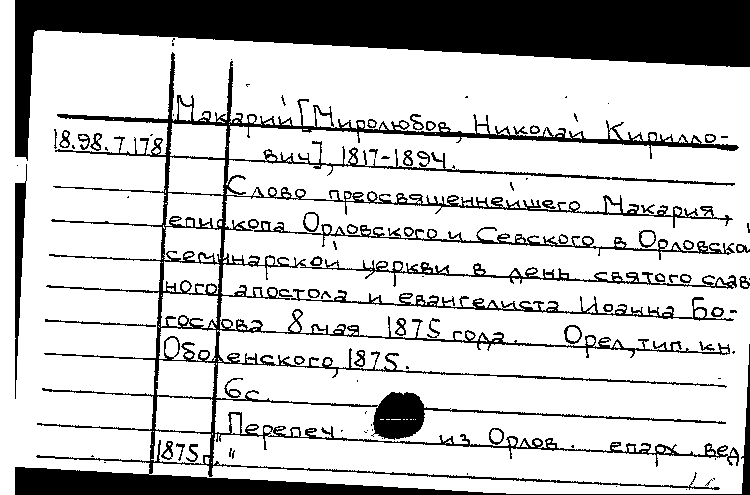 Макарий [Миролюбов, Николай Кирилло-
18.98.7.178 вич], 1817-1894.
Слово преосвященнейшего Макария,
епископа Орловского и Севского, в Орловско
семинарской церкви в день святого слав
ного апостола и евангелиста Иоанна Бо-
гослова 8 мая 1875 года. Орел, тип. кн.
Оболенского, 1875.
6с.
"Перепеч. из Орлов. епарх. вед.
1875г."